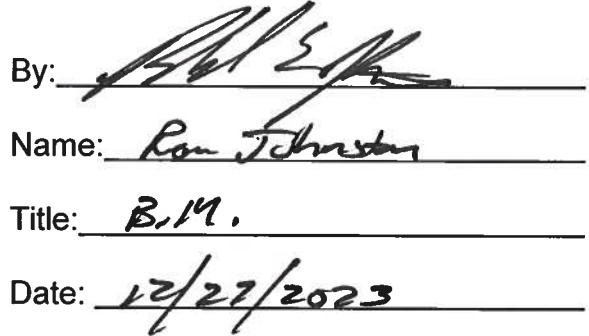 By:
Name: Ron Johnston
Title: B.M.
Date: 12/22/2023